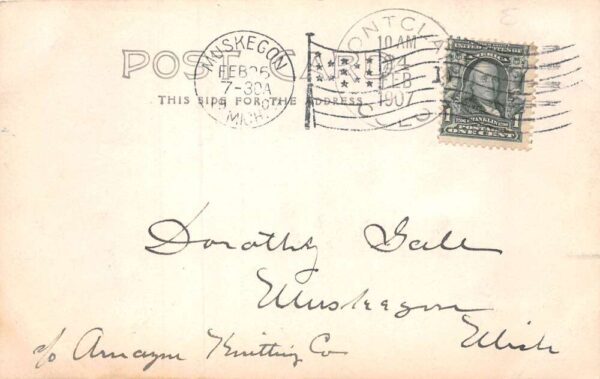 POST CARD
THIS SIDE FOR THE ADDRESS
MUSKEGON
FEB 26
7-30A
MICH.
MONTCLA
10 AM
24
FEB
1907
COLO
FRANKLIN
POSTAGE
ONE CENT
Dorothy Gale
Muskegon
Mich
c/o Amazon Knitting Co